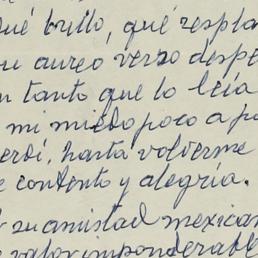 ué brillo, qué respla
u aureo verso despe
n tanto que lo leía
mi miedo poco a po
erdí, hasta volverme
e contento y alegría.
su amistad mexican
e valor imponderable